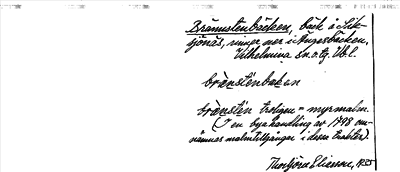 Brännstenbäcken, bäck å Sik-
sjönäs, rinner ner i Ångesbäcken,
Vilhelmina sn. o. tg. Vb. l.
brànstènbäken
brànstén troligen = myrmalm.
(I en byahandling av 1798 om-
nämnas malmtillgångar i dessa trakter).
Thorbjörn Eliasson, 1935